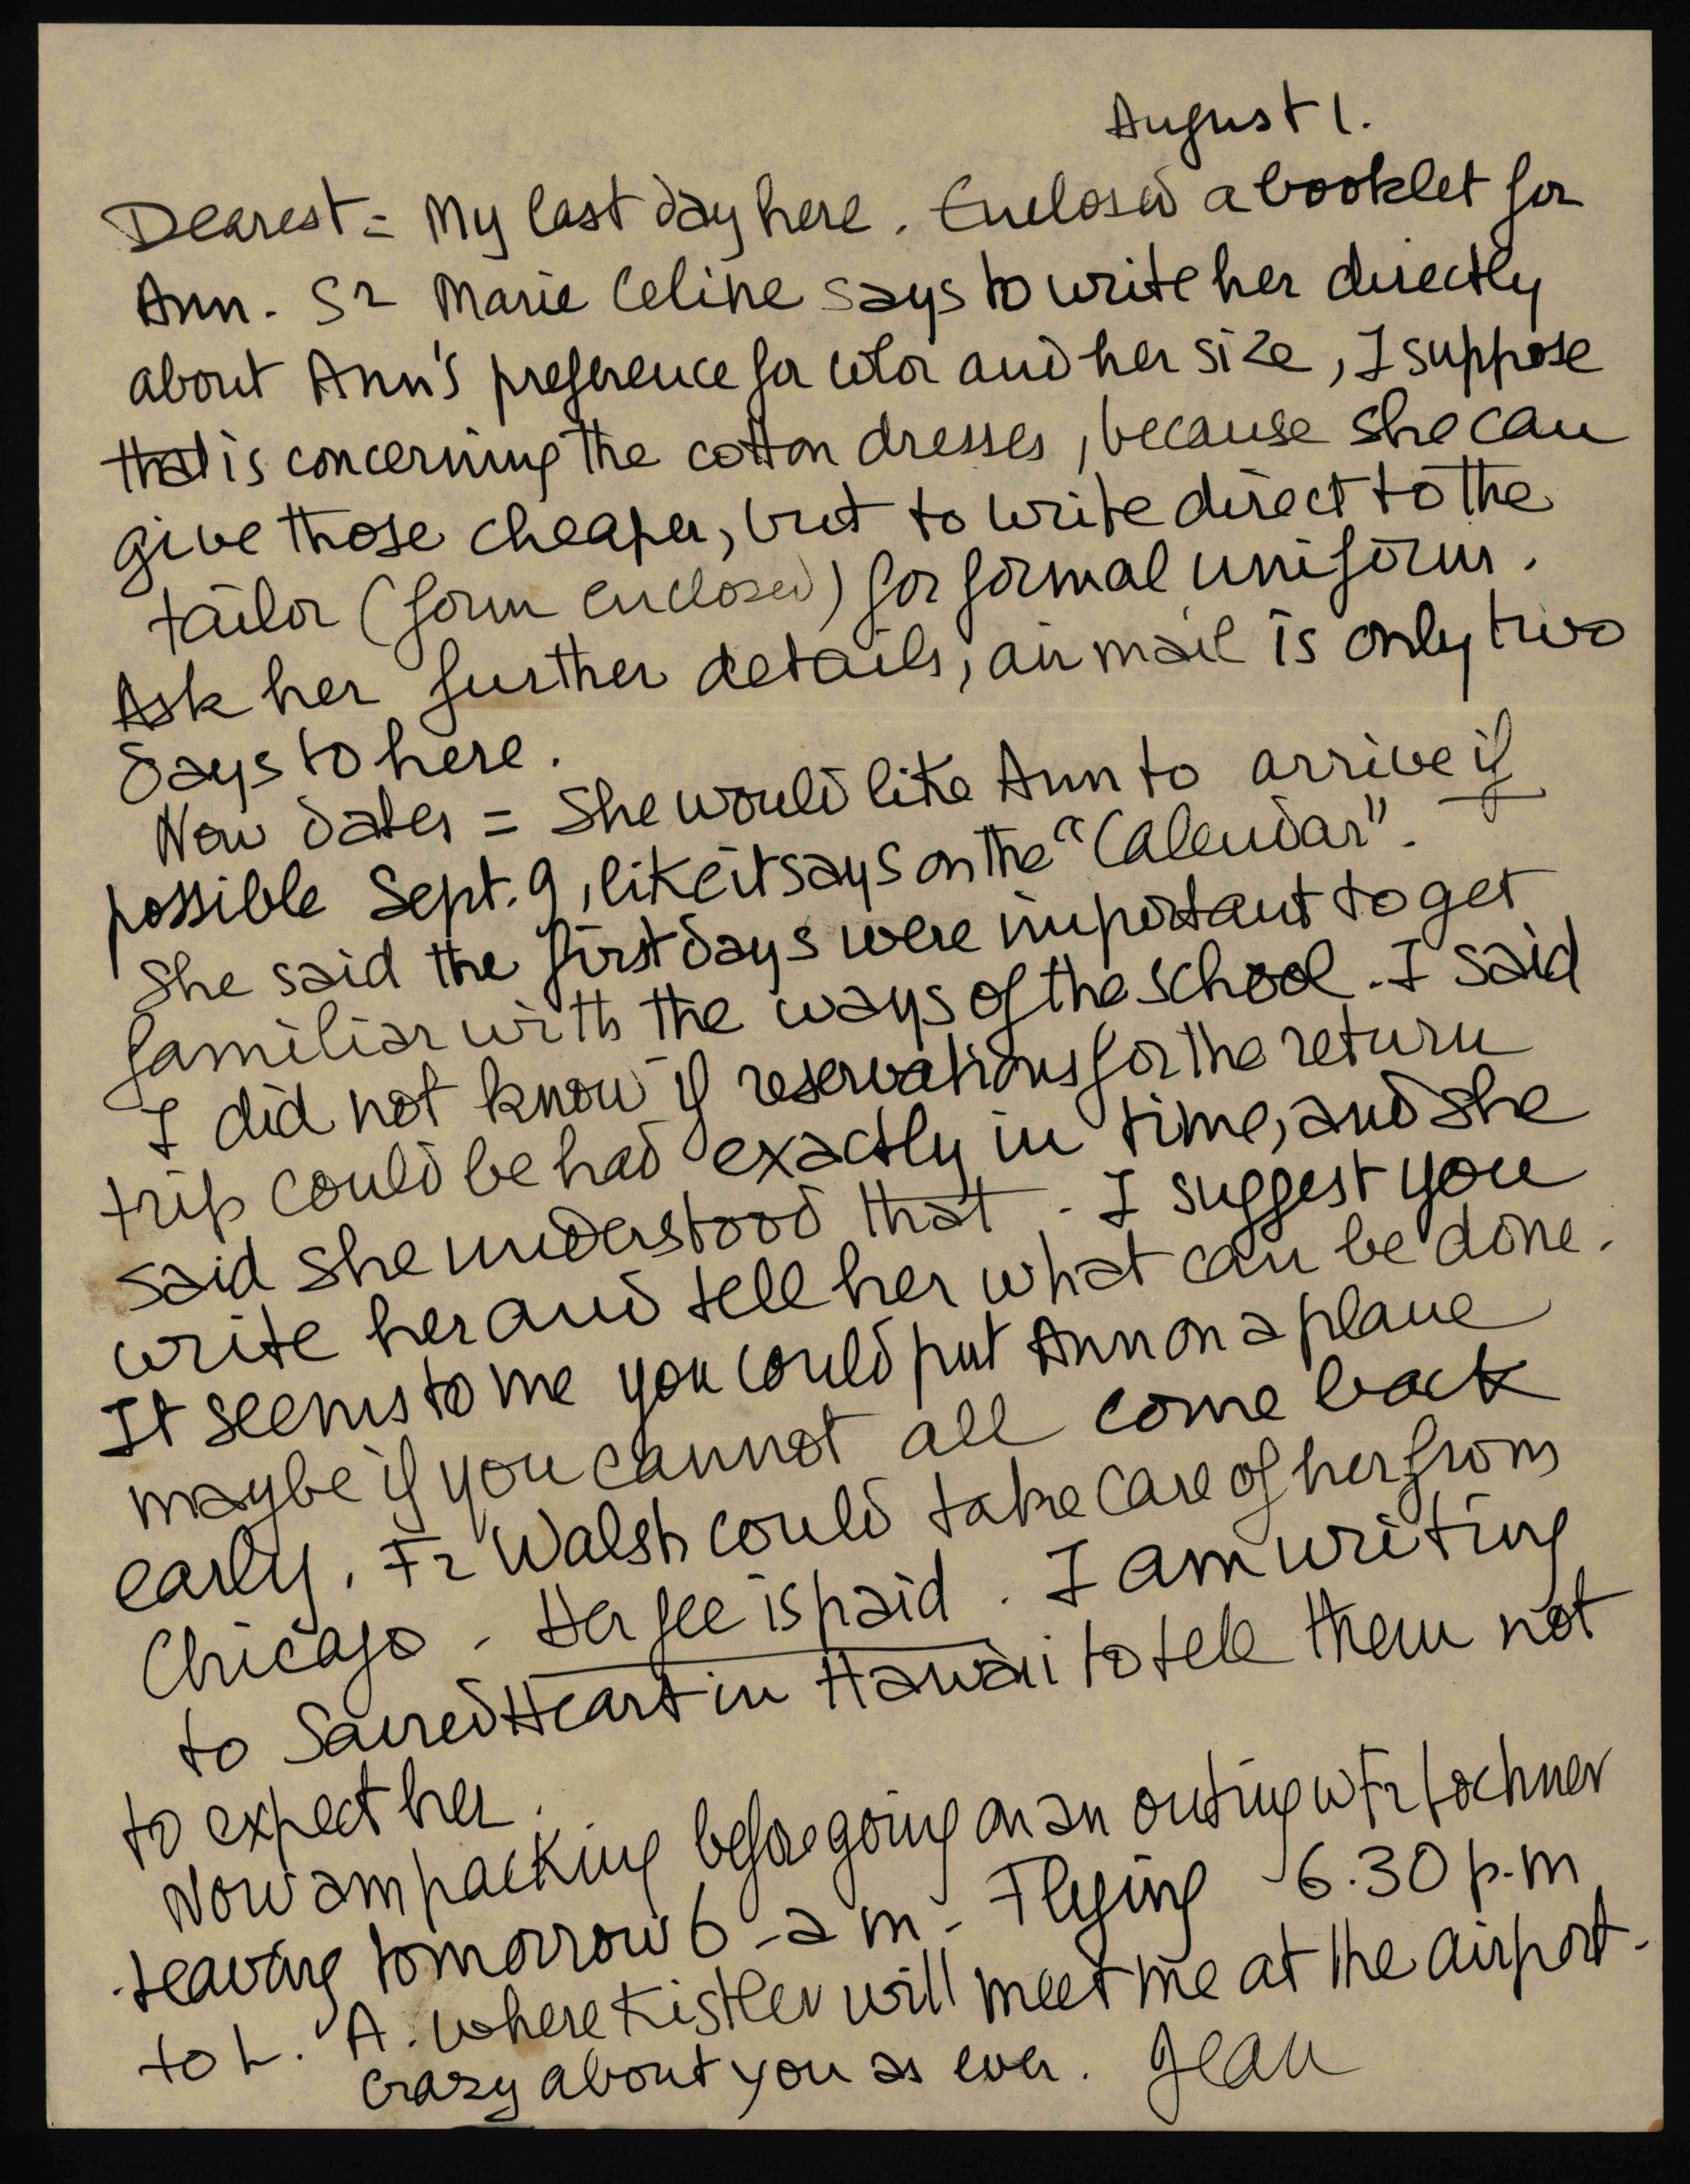 August 1.
Dearest = My last day here. Enclosed a booklet for
Ann. Sr Marie Celine says to write her directly
about Ann's preference for color and her size, I suppose
that is concerning the cotton dresses, because she can
give those cheaper, but to write direct to the
tailor (form enclosed) for formal uniform.
Ask her further details, air mail is only two
days to here.
Now dates = She would like Ann to arrive if
possible Sept. 9, like it says on the "Calendar".
She said the first days were important to get
familiar with the ways of the school. I said
I did not know if reservations for the return
trip could be had exactly in time, and she
said she understood that - I suggest you
write her and tell her what can be done.
It seems to me you could put Ann on a plane
maybe if you cannot all come back
early. Fr Walsh could take care of her from
Chicago - Her fee is paid. I am writing
to Sacred Heart in Hawaii to tell them not
to expect her.
Now am packing before going on an outing w Fr Lochner
Leaving tomorrow 6 - a m - Flying 6.30 p.m
to L. A. where Kistler will meet me at the airport -
Crazy about you as ever. Jean